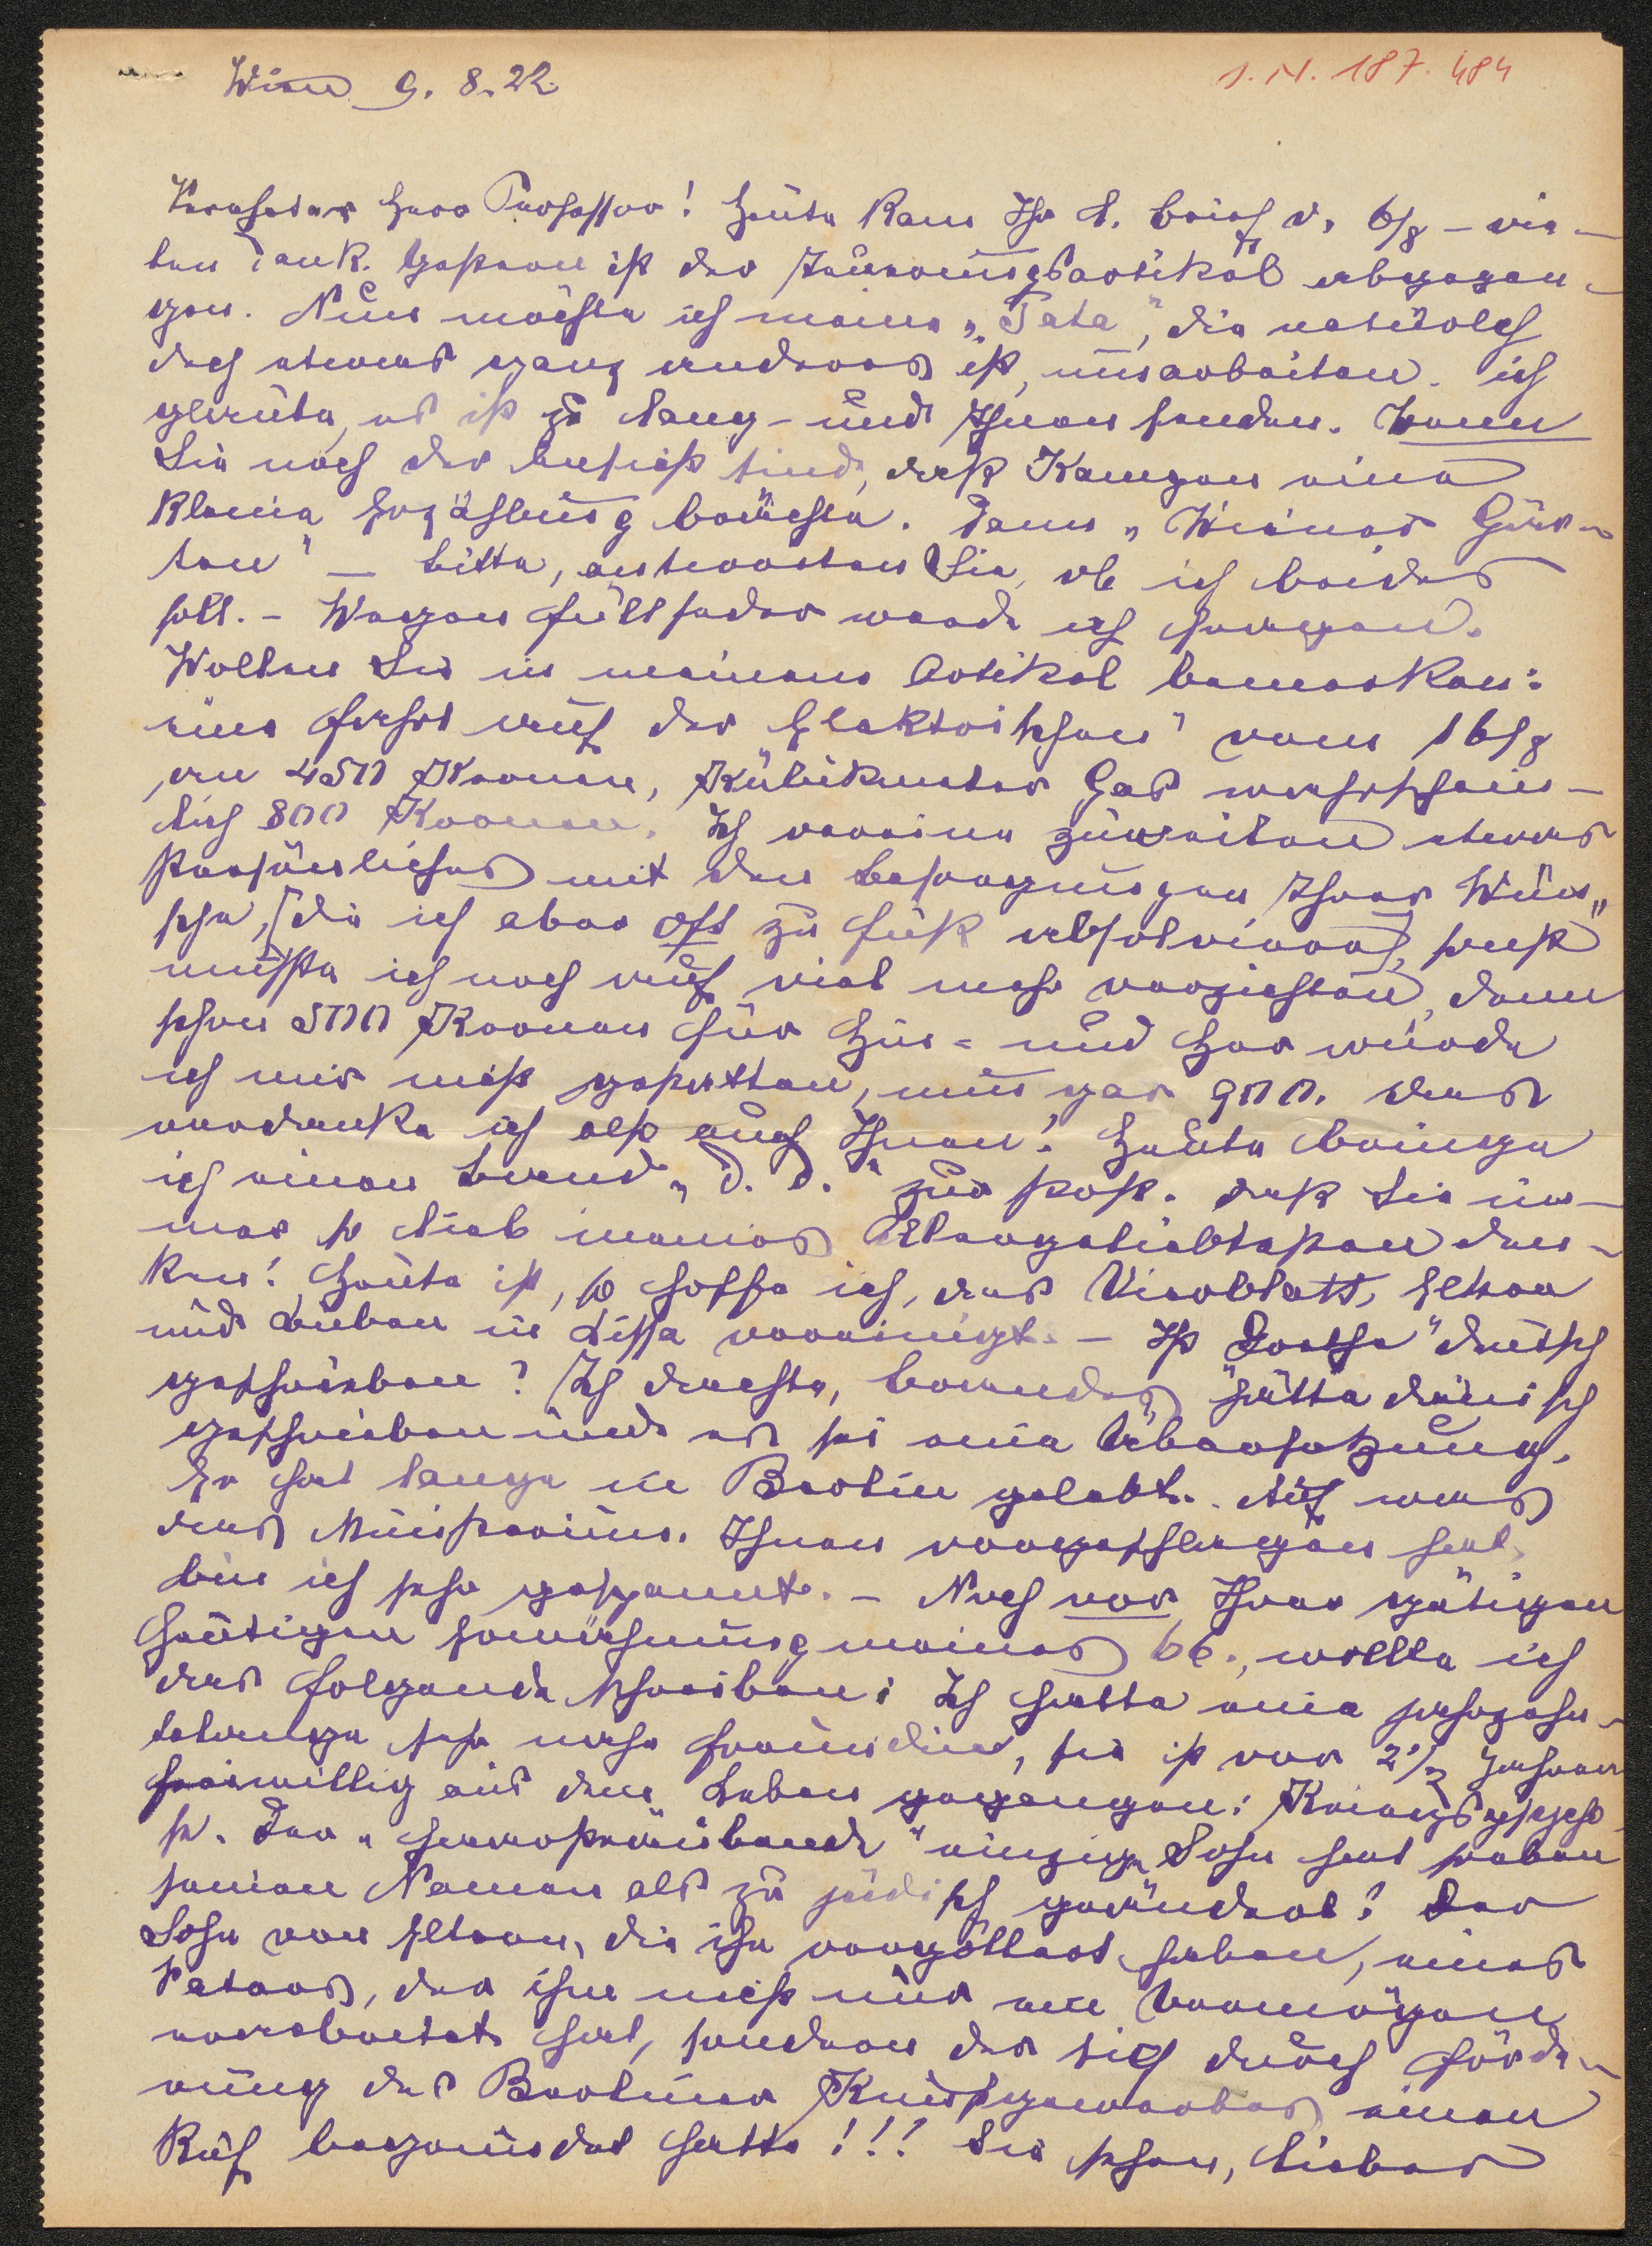 Wien 9. 8. 22.
I. N. 187. 484
Verehrter Herr Professor! Heute kam Ihr l. Brief v. 6/8 – vie-
len Dank. Gestern ist der Teuerungsartikel abgegan-
gen. Nun möchte ich meine „Tata", die natürlich
doch etwas ganz anderes ist, ausarbeiten. ich
glaube, es ist zu lang – und Ihnen senden. Wenn
Sie noch der Ansicht sind, daß Kongen eine
kleine Erzählung brächte. Dann „Wiener Gär-
ten" – bitte, antworten Sie, ob ich beides
soll. – Wegen Füllfeder werde ich
Wollen Sie in meinem Artikel bemerken:
eine Fahrt auf der Elektrischen" vom 16/8
an 450 Kronen, Kubikmeter Gas wahrschein-
lich 800 Kronen. Ich vereine zuweilen etwas
Persönliches mit den Besorgungen Ihrer Wün-
sche, [die ich aber oft zu Fuß absolviere], sonst
müßte ich noch auf viel mehr verzichten, denn
schon 500 Kronen für Hin- und Her würde
ich mir nicht gestatten, nun gar 900. Das
verdanke ich also auch Ihnen! Heute bringe
ich einen Band „d. d." zur Post. daß Sie im-
mer so lieb meines Allergeliebtesten den-
ken! Heute ist, so hoffe ich, das Vierblatt, Eltern
und Buben in Lissa vereinigt. – Ist „Dorthe" deutsch
geschrieben? Ich dachte, hätte dänisch
geschrieben und es sei eine Übersetzung.
Er hat lange in Berlin gelebt. Auf was
das Ministerium Ihnen vorgeschlagen hat,
bin ich sehr gespannt. – Noch vor Ihrer gütigen
heutigen Erwähnung meines 66., wollte ich
das Folgende schreiben: Ich hatte eine jahrzehn-
telange sehr nahe Freundin, sie ist vor 2½ Jahren
freiwillig aus dem Leben gegangen:
Der „ einzige Sohn hat soeben
seinen Namen als zu jüdisch geändert! Der
Sohn von Eltern, die ihn vergöttert haben, eines
Vaters, der ihm nicht nur ein Vermögen
erarbeitet hat, sondern der sich durch Förde-
rung des Berliner Kunstgewerbes einen
Ruf begründet hatte!!! Sie sehen, lieber